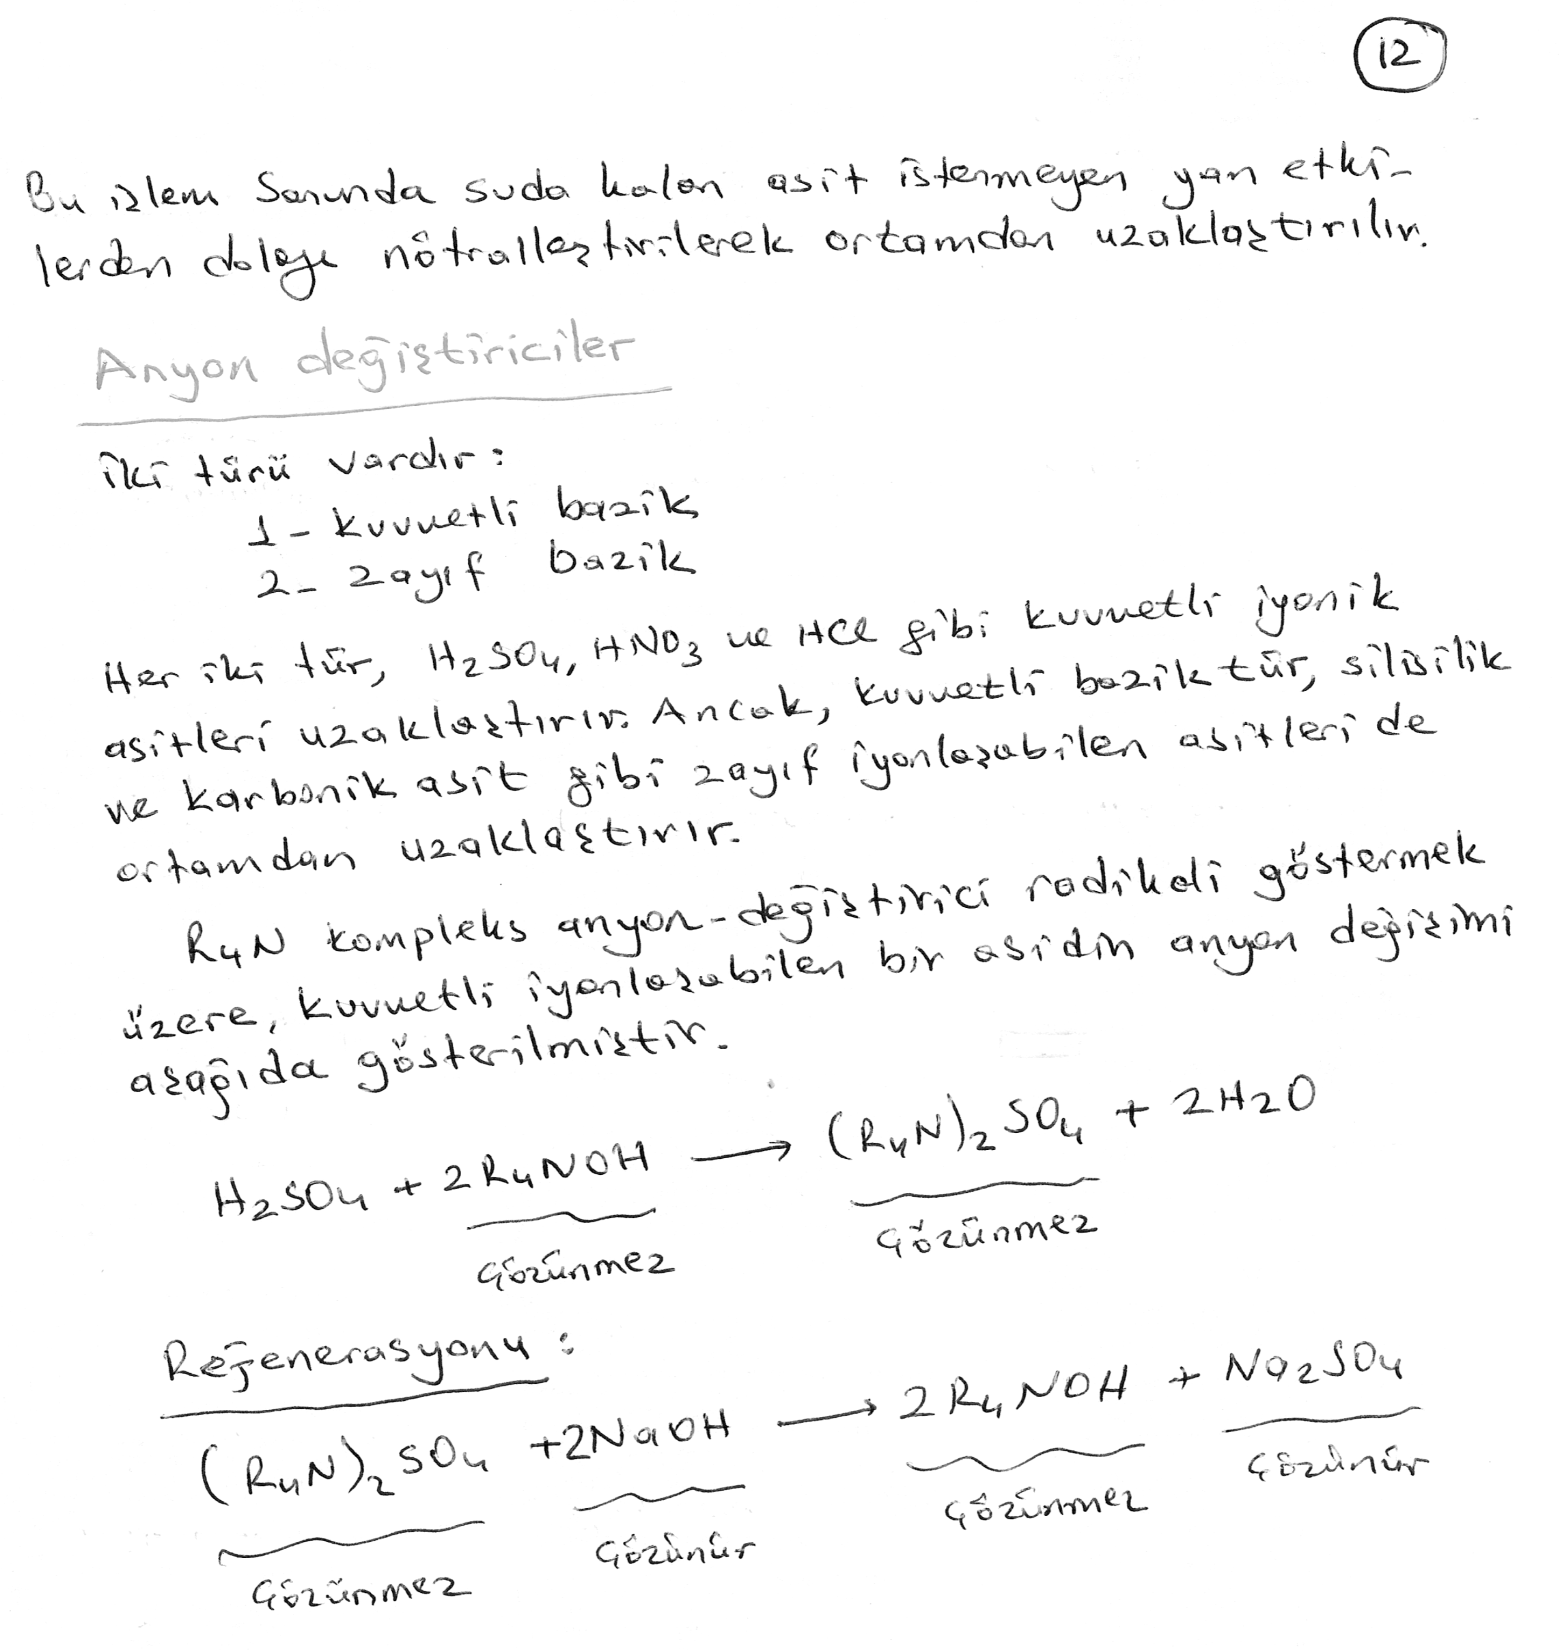 12
Bu işlem sonunda suda kalan asit istenmeyen yan etki-
lerden dolayı nötralleştirilerek ortamdan uzaklaştırılır.
Anyon değiştiriciler
İki türü vardır:
1- kuvvetli bazik
2- zayıf bazik
Her iki tür, H2SO4, HNO3 ve HCl gibi kuvvetli iyonik
asitleri uzaklaştırır. Ancak, kuvvetli bazik tür, silisilik
ve karbonik asit gibi zayıf iyonlaşabilen asitleri de
ortamdan uzaklaştırır.
R4N kompleks anyon-değiştirici radikali göstermek
üzere, kuvvetli iyonlaşabilen bir asidin anyon değişimi
aşağıda gösterilmiştir.
H2SO4 + 2R4NOH → (R4N)2SO4 + 2H2O
çözünmez çözünmez
Rejenerasyonu:
(R4N)2SO4 +2NaOH → 2R4NOH + Na2SO4
çözünmez çözünür çözünmez çözünür